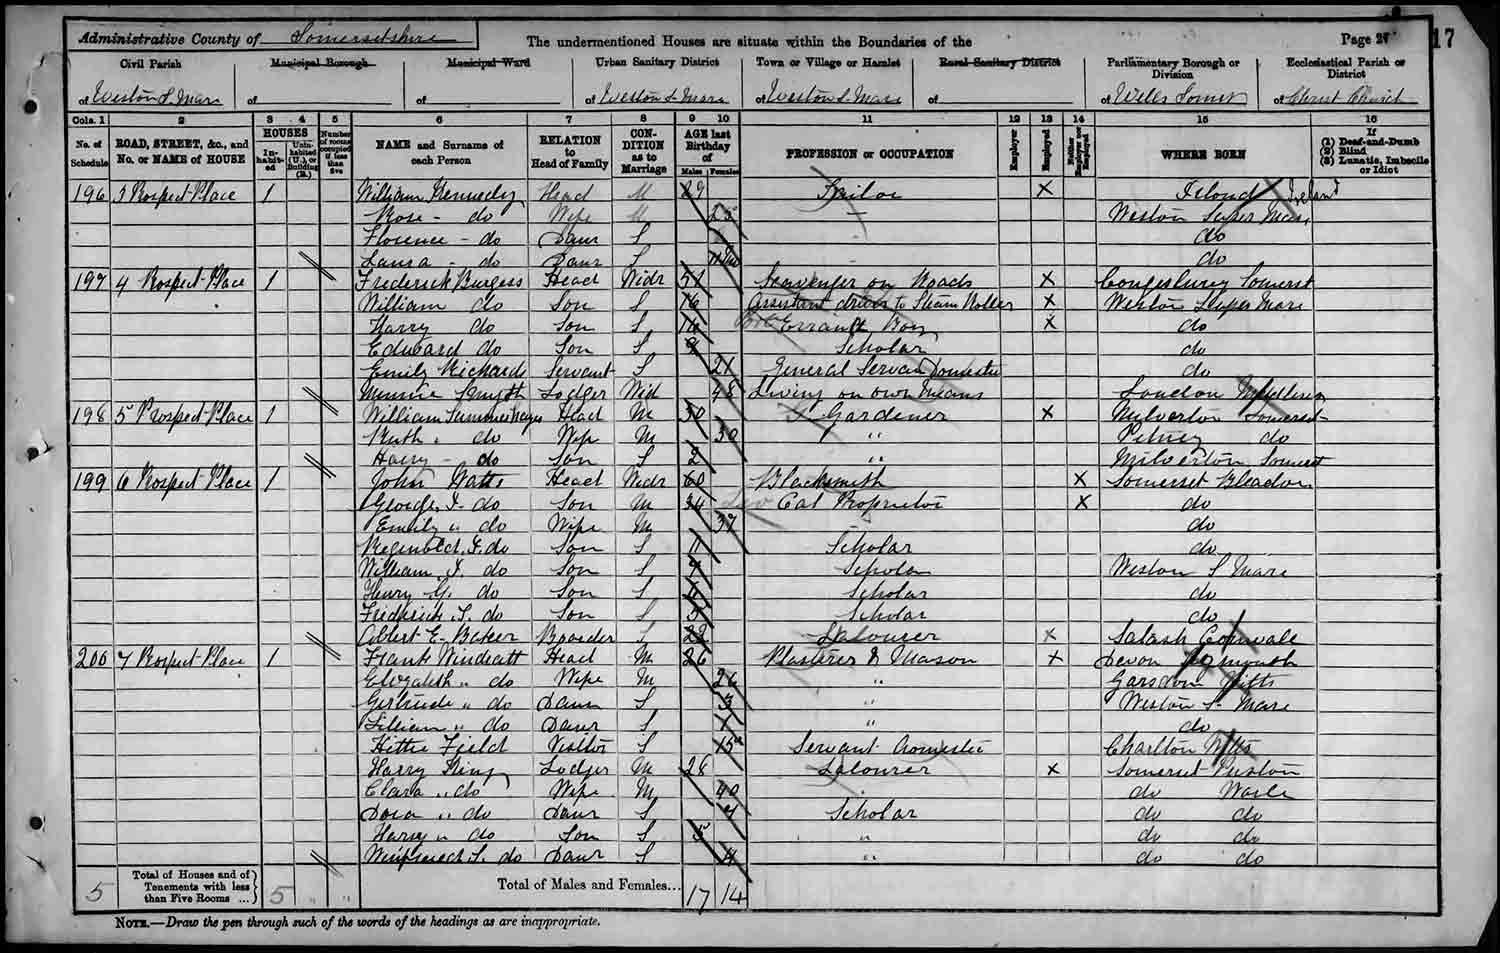 Administrative County of Somersetshire
The undermentioned Houses are situate within the Boundaries of the
Page 21
17
Civil Parish Municipal Borough Municipal Ward Urban Sanitary District Town or Village or Hamlet Rural Sanitary District Parliamentary Borough or Division Ecclesiastical Parish or District
of Weston S. Mare of of of Weston S. Mare of Weston S. Mare of of Wells Somerset of Christ Church
Cols. 1 2 3 4 5 6 7 8 9 10 11 12 13 14 15 16
No. of Schedule ROAD, STREET, &c., and No. or NAME of HOUSE HOUSES Inhabited Uninhabited (U.), or Building (B.) Number of rooms occupied if less than five NAME and Surname of each Person RELATION to Head of Family CONDITION as to Marriage AGE last Birthday of Males Females PROFESSION or OCCUPATION Employer Employed Neither Employer nor Employed WHERE BORN If (1) Deaf-and-Dumb (2) Blind (3) Lunatic, Imbecile or Idiot
196 3 Prospect Place 1 William Kennedy Head M 29 X Ireland
Rose - do Wife M 25 - Weston Super Mare
Florence - do Daur S do
Laura - do Daur S 11 Mo do
197 4 Prospect Place 1 Frederick Burgess Head Widr 51 Scavenger on Roads X Congesbury Somerset
William do Son S 16 Assistant driver to Steam Roller X Weston Super Mare
Harry do Son S 14 Errand Boy X do
Edward do Son S 9 Scholar do
Emily Richards Servant S 21 General Servant Domestic do
Smyth Lodger Wid 48 Living on own Means London Middlesex
198 5 Prospect Place 1 William Summerhayes Head M 30 Gardener X Milverton Somerset
Ruth " do Wife M 30 " Pitney do
Harry - do Son S 2 " Milverton Somerset
199 6 Prospect Place 1 John Watts Head Widr 60 Blacksmith X Somerset Bleadon
George J. do Son M 34 Cab Proprietor X do
Emily " do Wife M 37 do
Reginald J. do Son S 11 Scholar do
William J. do Son S 7 Scholar Weston S Mare
Henry G. do Son S Scholar do
Frederick S. do Son S 5 Scholar do
Albert E. Baker Boarder S 22 Labourer X Saltash Cornwall
200 7 Prospect Place 1 Frank Windeatt Head M 26 Plasterer & Mason X Devon Plymouth
Elizabeth " do Wife M 26 " Garsdon Wilts
Gertrude " do Daur S 3 " Weston S. Mare
Lillian " do Daur S 1 " do
Kittie Field Visitor S 15 Servant Domestic Charlton Wilts
Harry King Lodger M 28 Labourer X Somerset Puriton
Clara " do Wife M 40 do
Dora " do Daur S 7 Scholar do do
Harry " do Son S 5 " do do
S. do Daur S 4 " do do
5 Total of Houses and of Tenements with less than Five Rooms ... 5 " " Total of Males and Females... 17 14
NOTE.—Draw the pen through such of the words of the headings as are inappropriate.